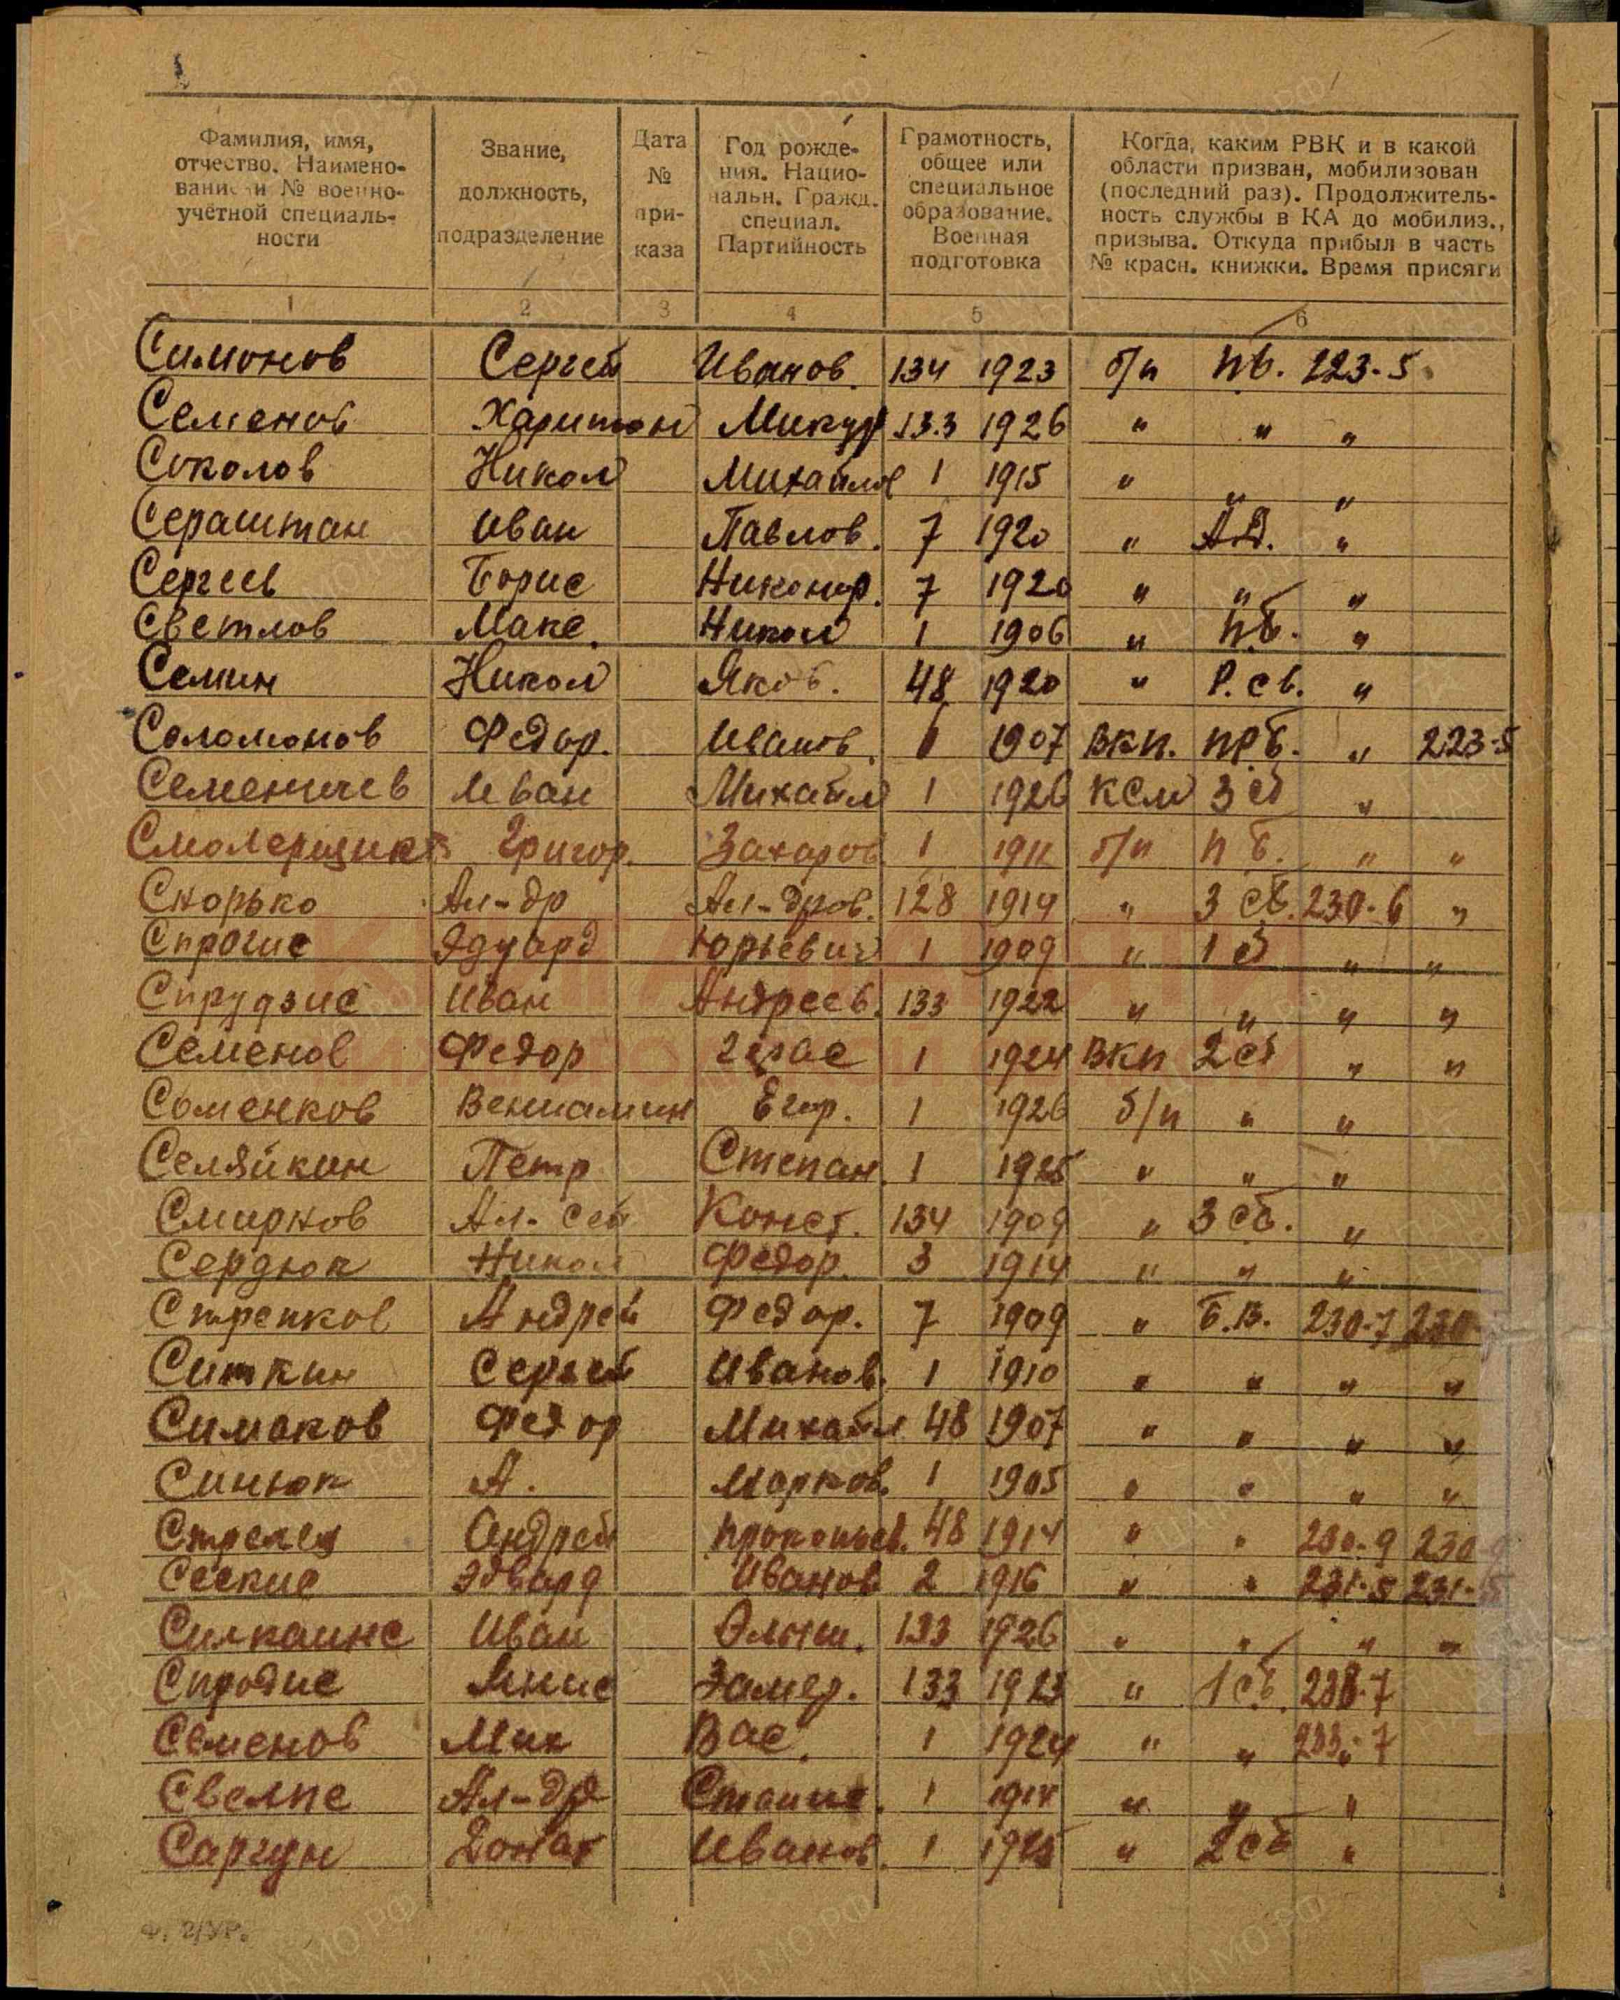 Фамилия, имя,
отчество. Наимено-
вание и № военно-
учётной специаль-
ности
Звание,
должность,
подразделение
Дата
№
при-
каза
Год рожде-
ния. Нацио-
нальн. Гражд.
специал.
Партийность
Грамотность,
общее или
специальное
образование.
Военная
подготовка
Когда, каким РВК и в какой
области призван, мобилизован
(последний раз). Продолжитель-
ность службы в КА до мобилиз.,
призыва. Откуда прибыл в часть
№ красн. книжки. Время присяги
1 2 3 4 5 6
Симонов Сергей Иванов. 134 1923 б/п пб. 223-5
Семенов Харитон 133 1926 " " "
Соколов Никол Михайлов 1 1915 " " "
Сераштан Иван Павлов. 7 1920 " А.Д. "
Сергеев Борис Никонор. 7 1920 " " "
Светлов Макс. Никол 1 1906 " пб. "
Семин Никол Яков. 48 1920 " Р.св. "
Соломонов Федор. Иванов. 1907 ВКП. прб. " 223-5
Семеничев Иван Михайл 1 1926 КСМ 3 сб "
Григор. Захаров. 1 1911 б/п пб. " "
Скорько Ал-др Ал-дров. 128 1914 " 3 сб. 230-6 "
Спрогис Эдуард Юрьевич 1 1909 " 1 сб " "
Спрудзис Иван Андреев. 133 1922 " " " "
Семенов Федор 1 1924 ВКП 2 сб " "
Соменков Вениамин Егор. 1 1926 б/п " "
Селяйкин Петр Степан. 1 1925 " " "
Смирнов Ал-сей Конст. 134 1909 " 3 сб. "
Сердюк Никол Федор. 3 1914 " " "
Стрепков Андрей Федор. 7 1909 " Б.В. 230-7 230-
Ситкин Сергей Иванов. 1 1910 " " " "
Симаков Федор Михайл 48 1907 " " " "
Синюк А. Марков. 1 1905 " " " "
Стрелец Андрей Прокопьев. 48 1914 " " 230-9 230-9
Сеския Эдвард Иванов 2 1916 " " 231-5 231-5
Силкаинс Иван 133 1926 " " " "
Спродис Янис 133 1923 " 1 сб 238-7
Семенов Мих Вас. 1 1924 " " 233-7
Свелпе Ал-др 1 1914 " " "
Саргун Донат Иванов. 1 1925 " 2 сб "
Ф. 2/УР.